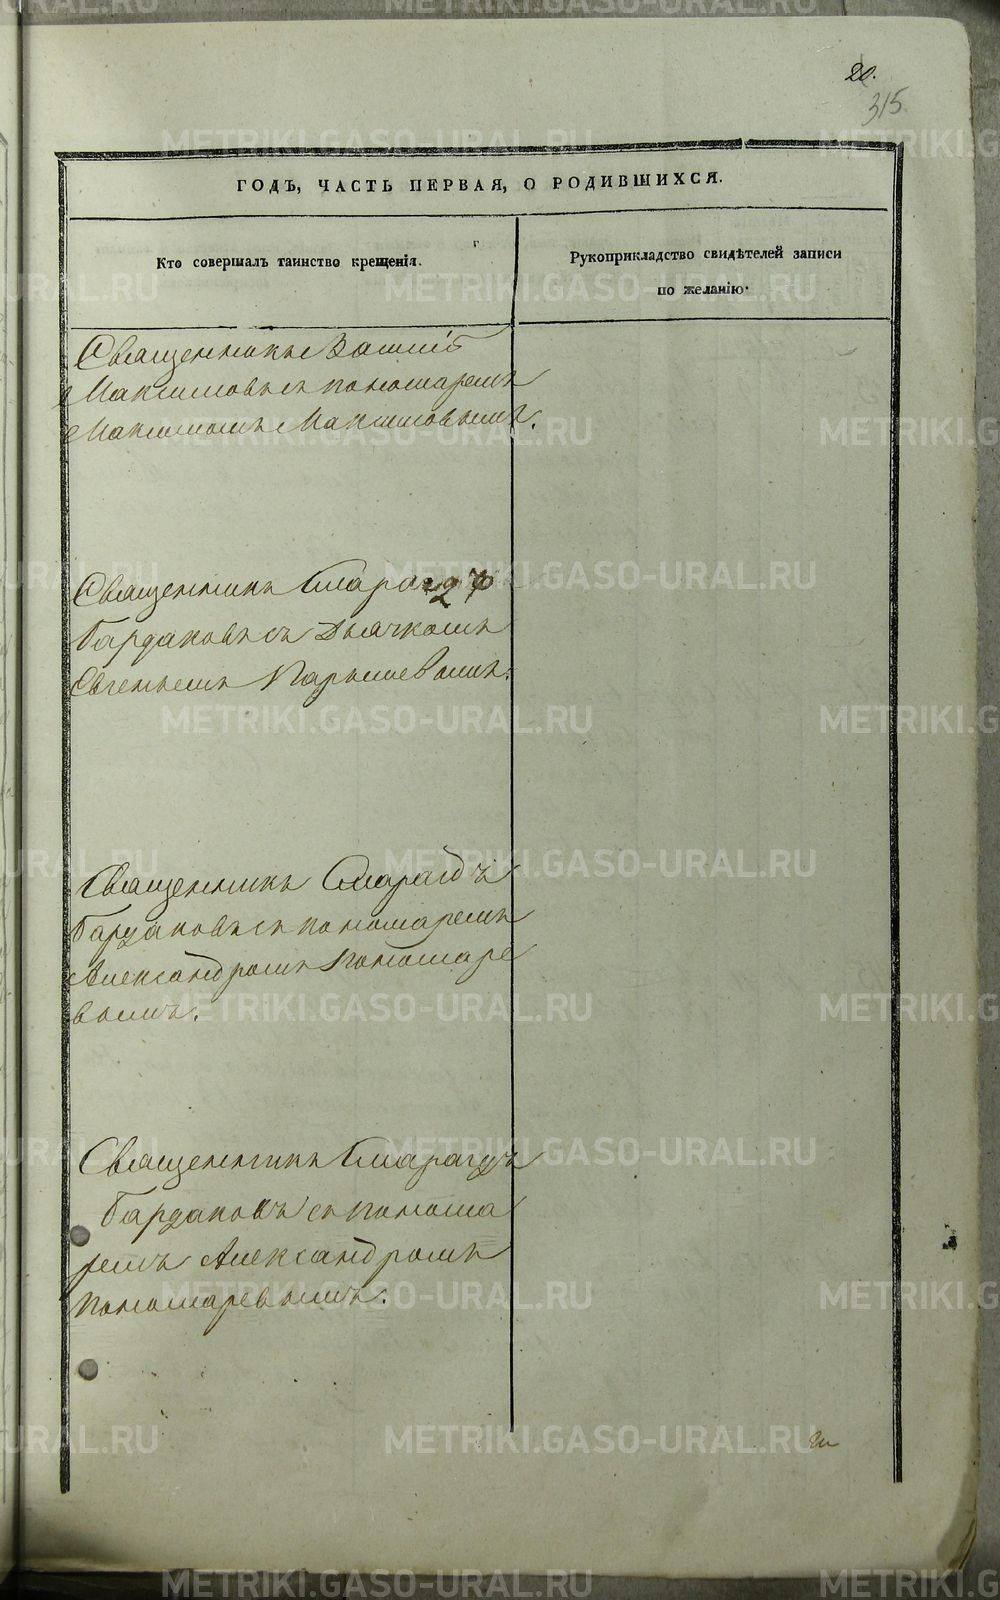 20.
315
ГОДЪ, ЧАСТЬ ПЕРВАЯ, О РОДИВШИХСЯ.
Кто совершалъ таинство крещенія.
Рукоприкладство свидѣтелей записи
по желанію.
Священникъ
Максимовъ съ пономаремъ
Максимомъ Максимовымъ.
Священникъ Смарагдъ
Бардаковъ съ Дьячкомъ
Евгеньемъ Парышевымъ.
Священникъ Смарагдъ
Бардаковъ съ пономаремъ
Александромъ Пономаре
вымъ.
Священникъ Смарагдъ
Бардаковъ съ понома
ремъ Александромъ
Пономаревымъ.
METRIKI.GASO-URAL.RU